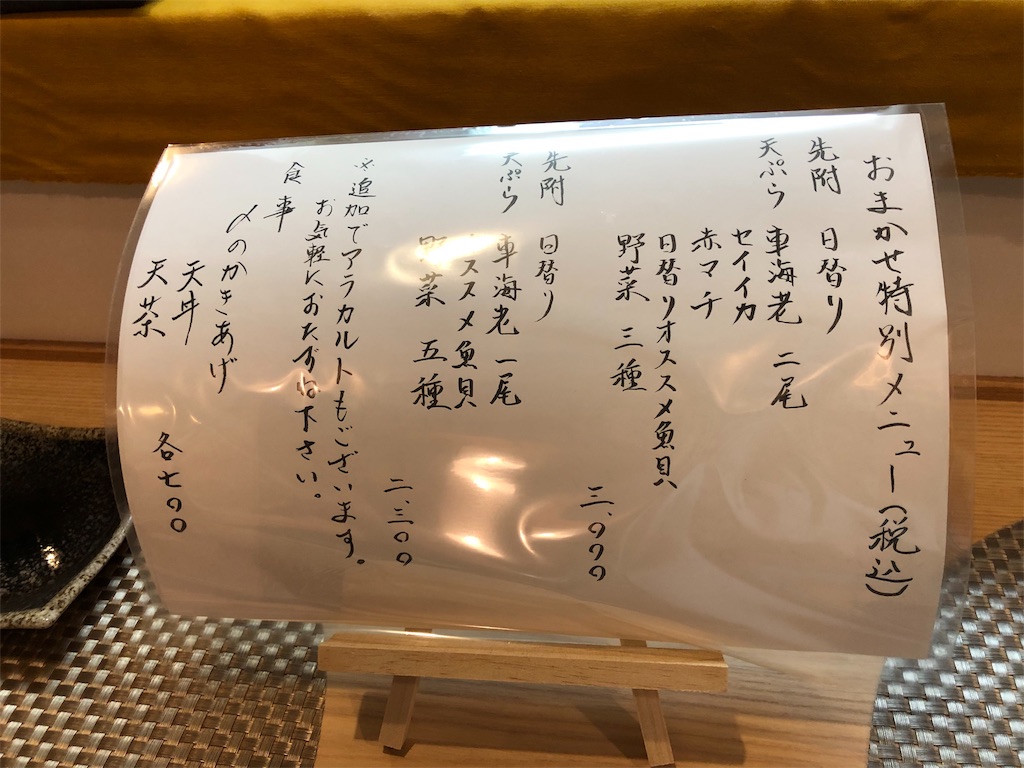 おまかせ特別メニュー(税込)
先附 日替り
天ぷら 車海老 二尾
セイイカ
赤マチ
日替りオススメ魚貝
野菜 三種
三、〇〇〇
先附 日替り
天ぷら 車海老 一尾
オススメ魚貝
野菜 五種
二、三〇〇
※追加でアラカルトもございます。
お気軽におたずね下さい。
食事
〆のかきあげ
天丼
天茶
各七〇〇